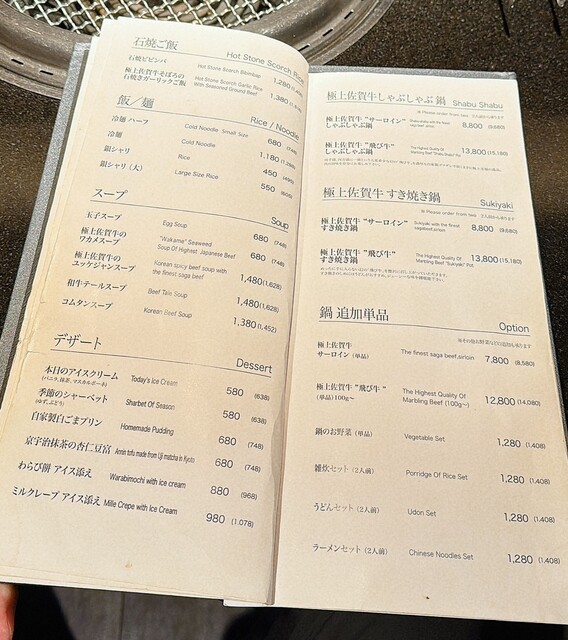 石焼ご飯 Hot Stone Scorch Rice
石焼ビビンバ Hot Stone Scorch Bibimbap 1,280
極上佐賀牛そぼろの
石焼きガーリックご飯 Hot Stone Scorch Garlic Rice
With Seasoned Ground Beef 1,380
飯／麺 Rice / Noodle
冷麺 ハーフ Cold Noodle Small Size 680 (748)
冷麺 Cold Noodle 1,180
銀シャリ Rice 450 (495)
銀シャリ（大） Large Size Rice 550 (605)
スープ Soup
玉子スープ Egg Soup 680 (748)
極上佐賀牛の
ワカメスープ "Wakame" Seaweed
Soup Of Highest Japanese Beef 680 (748)
極上佐賀牛の
ユッケジャンスープ Korean spicy beef soup with
the finest saga beef 1,480 (1,628)
和牛テールスープ Beef Tale Soup 1,480 (1,628)
コムタンスープ Korean Beef Soup 1,380 (1,452)
デザート Dessert
本日のアイスクリーム
(バニラ、抹茶、マスカルポーネ) Today's Ice Cream 580 (638)
季節のシャーベット
(ゆず、ぶどう) Sharbet Of Season 580 (638)
自家製白ごまプリン Homemade Pudding 680 (748)
京宇治抹茶の杏仁豆腐 Annin tofu made from Uji matcha in Kyoto 680 (748)
わらび餅 アイス添え Warabimochi with Ice cream 880 (968)
ミルクレープ アイス添え Mille Crepe with Ice Cream 980 (1,078)
極上佐賀牛しゃぶしゃぶ鍋 Shabu Shabu
※ Please order from two 2人前から承ります
極上佐賀牛 "サーロイン"
しゃぶしゃぶ鍋 8,800 (9,680)
極上佐賀牛 "飛び牛"
しゃぶしゃぶ鍋 The Highest Quality Of
Marbling Beef "Shabu Shabu" Pot 13,800 (15,180)
極上佐賀牛 すき焼き鍋 Sukiyaki
※ Please order from two 2人前から承ります
極上佐賀牛 "サーロイン"
すき焼き鍋 Sukiyaki with the finest
sagabeef,sirloin 8,800 (9,680)
極上佐賀牛 "飛び牛"
すき焼き鍋 The Highest Quality Of
Marbling Beef "Sukiyaki" Pot 13,800 (15,180)
鍋 追加単品 Option
極上佐賀牛
サーロイン（単品） The finest saga beef,sirloin 7,800 (8,580)
極上佐賀牛 "飛び牛"
（単品）100g〜 The Highest Quality Of
Marbling Beef (100g〜) 12,800 (14,080)
鍋のお野菜（単品） Vegetable Set 1,280 (1,408)
雑炊セット（2人前） Porridge Of Rice Set 1,280 (1,408)
うどんセット（2人前） Udon Set 1,280 (1,408)
ラーメンセット（2人前） Chinese Noodles Set 1,280 (1,408)